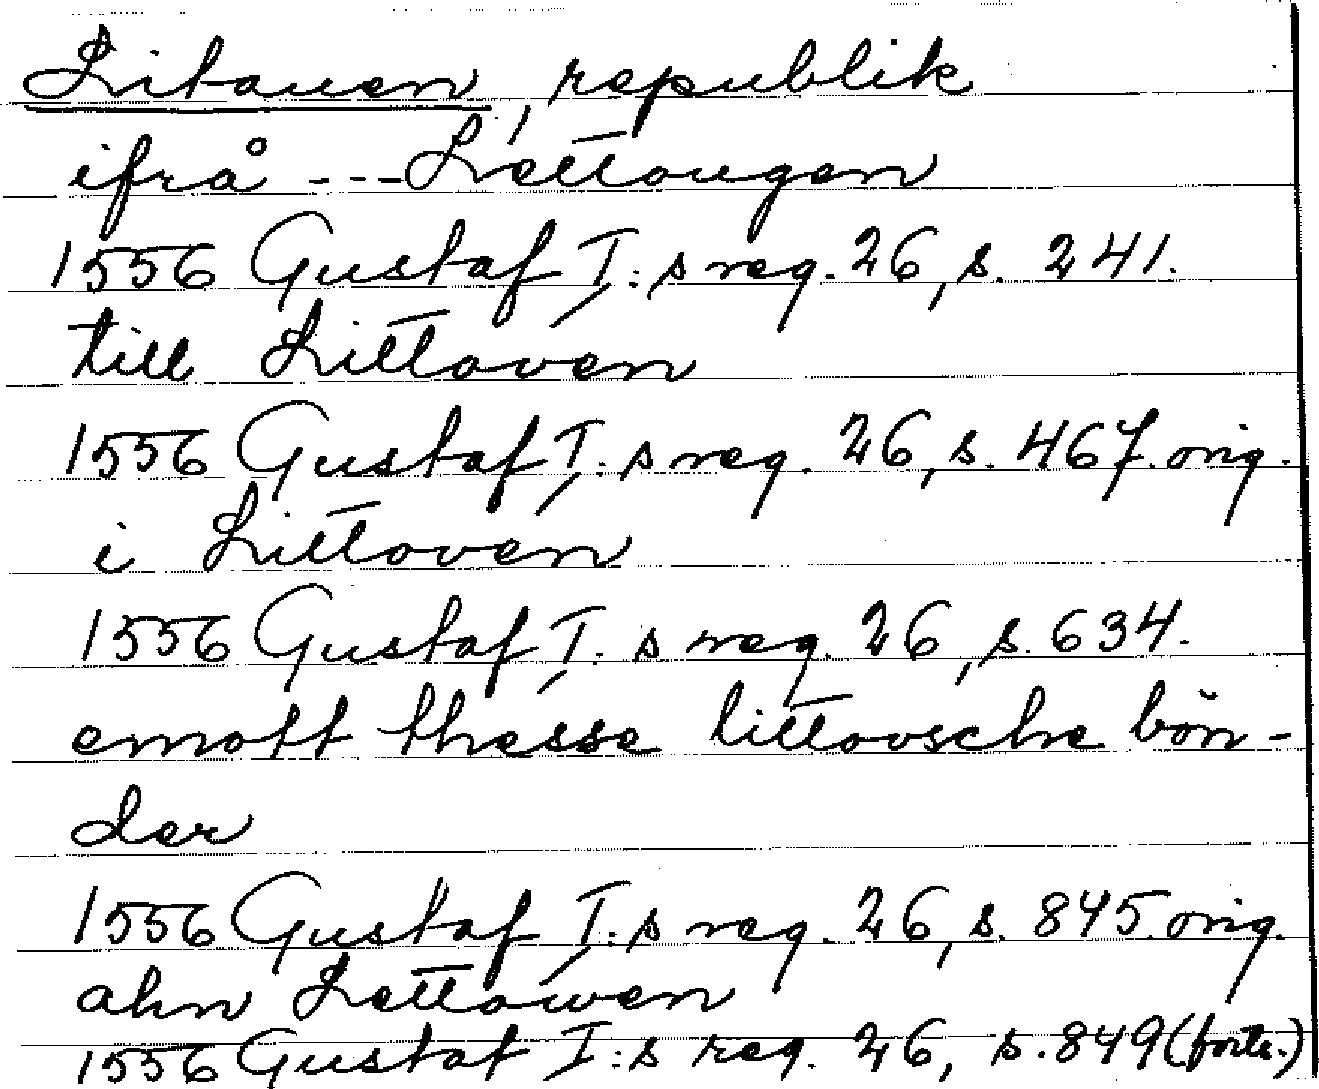 Litauen, republik
ifrå --- Lettougen
1556 Gustaf I:s reg. 26, s. 241.
till Littoven
1556 Gustaf I:s reg. 26, s. 467. orig.
i Littoven
1556 Gustaf I:s reg. 26, s. 634.
emott thesse littovsche bön-
der
1556 Gustaf I:s reg. 26, s. 845. orig.
ahn Lettowen
1556 Gustaf I:s reg. 26, s. 849 (forts.)